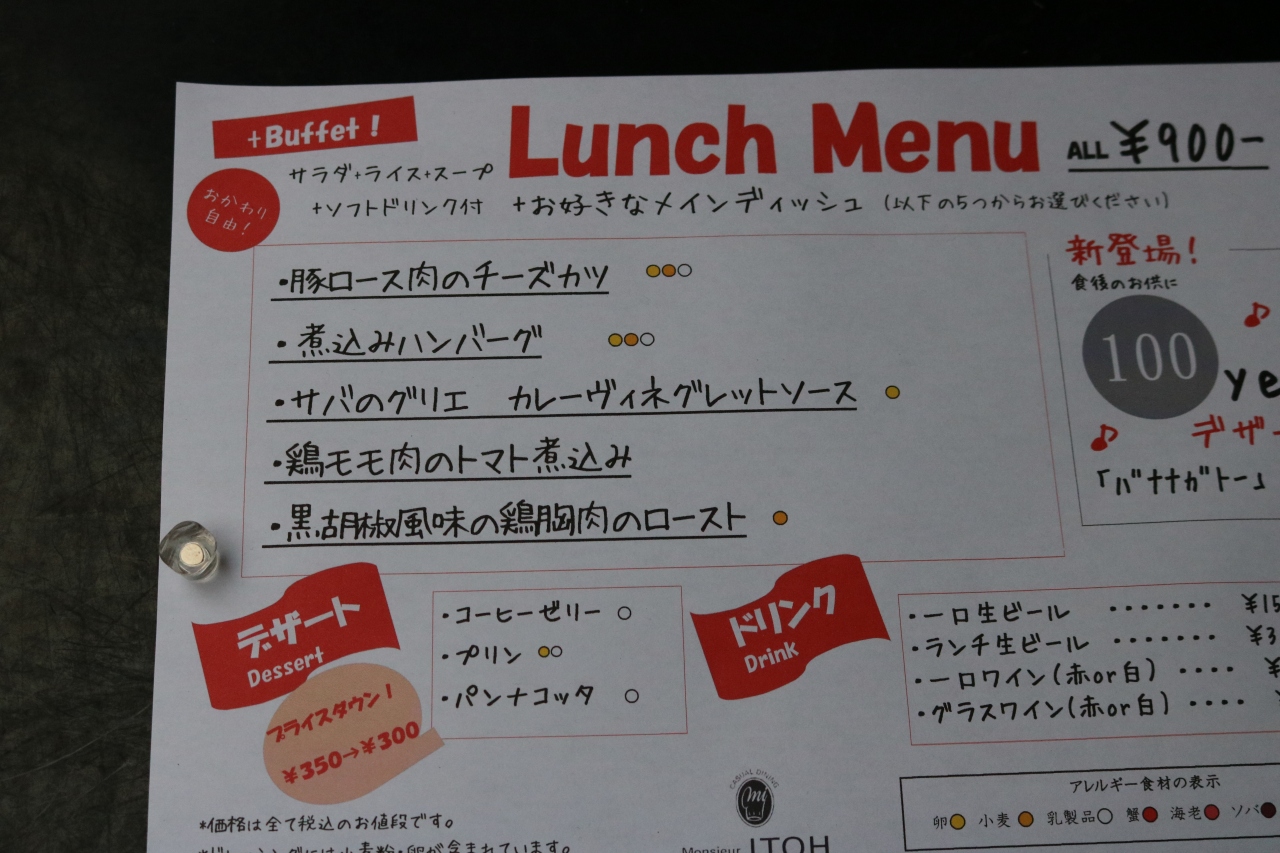 +Buffet!
Lunch Menu
ALL ¥900-
サラダ+ライス+スープ
+ソフトドリンク付 +お好きなメインディッシュ (以下の5つからお選びください)
おかわり
自由!
・豚ロース肉のチーズカツ
・煮込みハンバーグ
・サバのグリエ カレーヴィネグレットソース
・鶏モモ肉のトマト煮込み
・黒胡椒風味の鶏胸肉のロースト
新登場!
食後のお供に
100
ye
デザー
「バナナガトー」
デザート
Dessert
プライスダウン!
¥350→¥300
・コーヒーゼリー
・プリン
・パンナコッタ
ドリンク
Drink
・一口生ビール ・・・・・・・ ¥15
・ランチ生ビール ・・・・・・・ ¥3
・一口ワイン(赤or白) ・・・・ ¥
・グラスワイン(赤or白) ・・・・
アレルギー食材の表示
卵 小麦 乳製品 蟹 海老 ソバ
CASUAL DINING
Monsieur ITOH
*価格は全て税込のお値段です。
*ドレッシングには小麦粉・卵が含まれています。